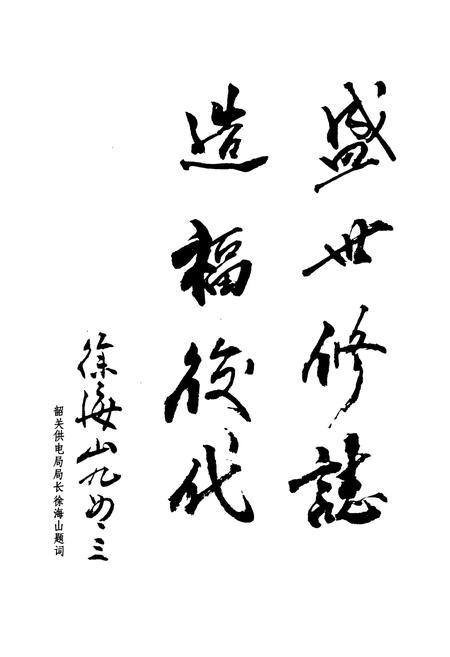 盛世修誌
造福後代
徐海山九四、三
韶关供电局局长徐海山题词